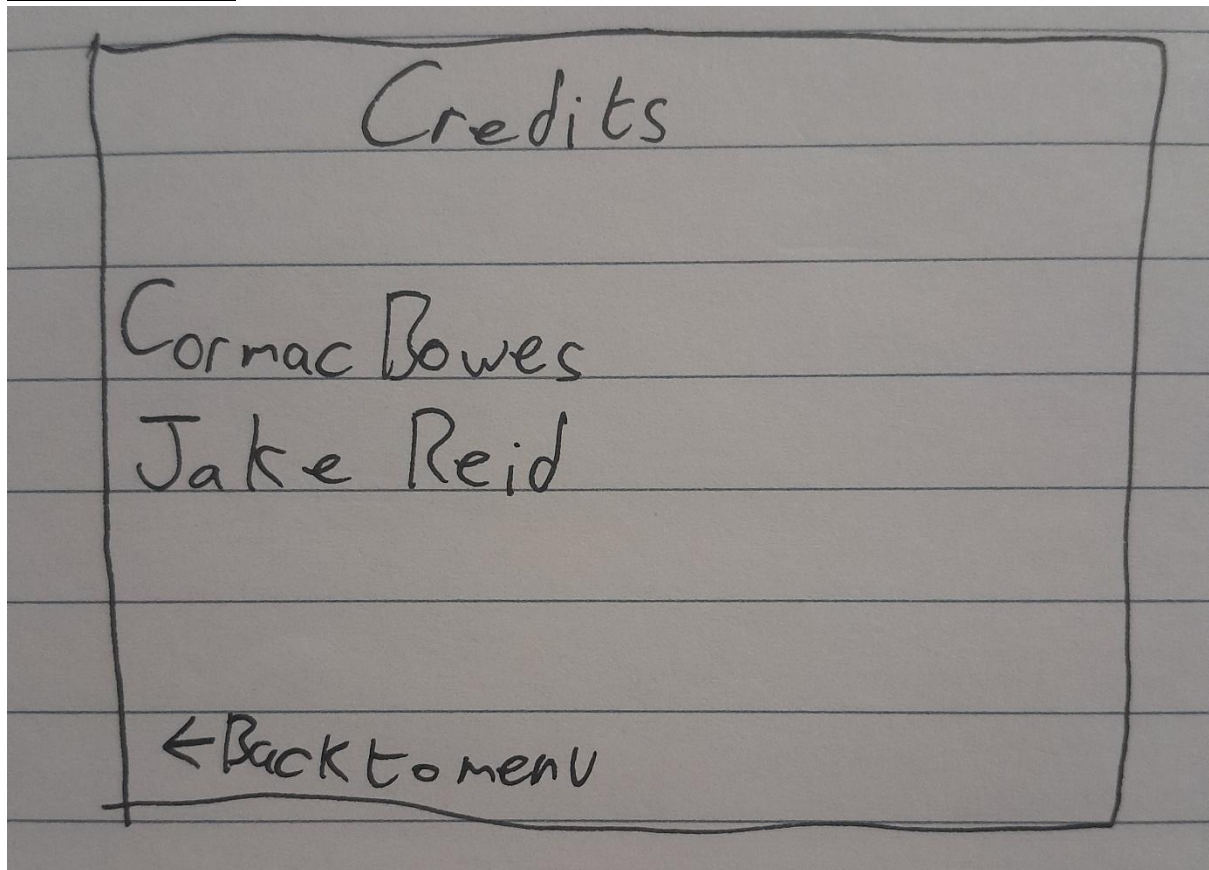 Credits
Cormac Bowes
Jake Reid
←Back to menu